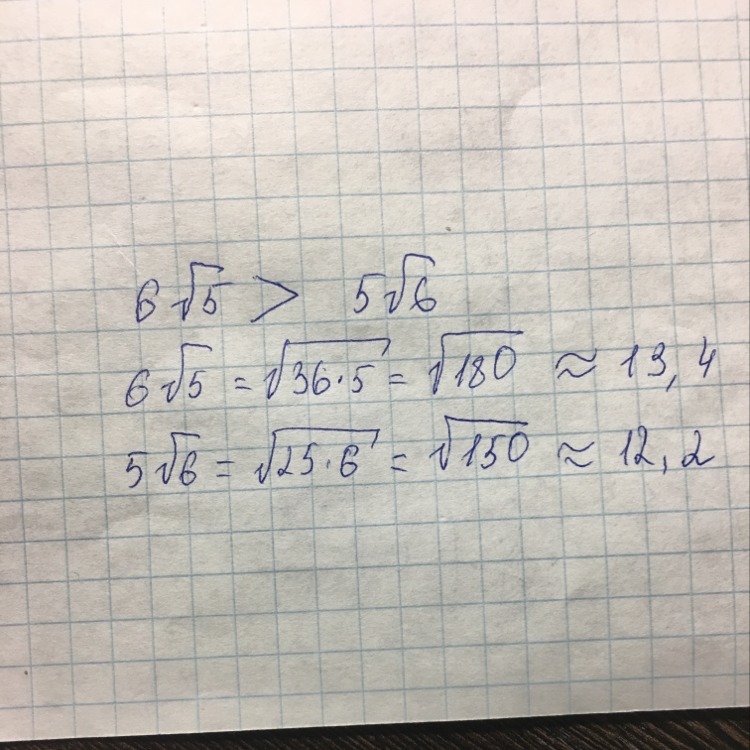 6√5 > 5√6
6√5 = √36·5 = √180 ≈ 13,4
5√6 = √25·6 = √150 ≈ 12,2